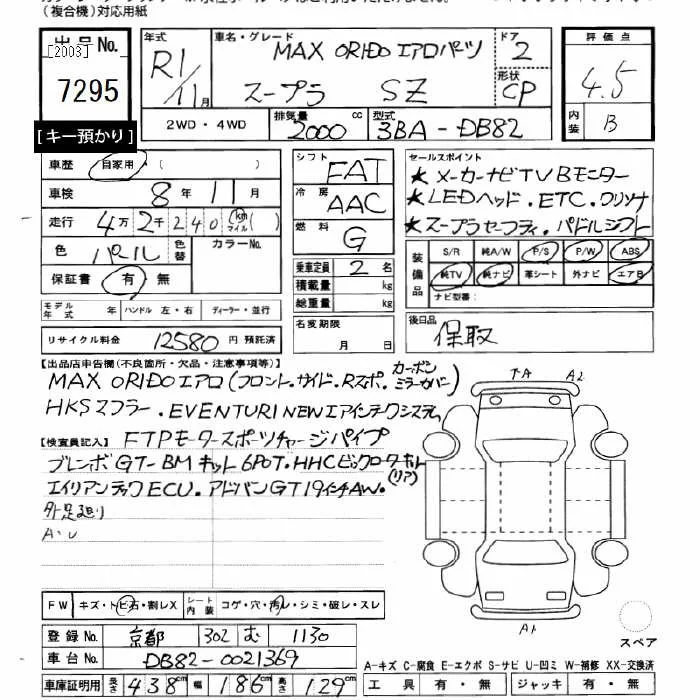 (複合機)対応用紙
出品No.
[2003]
7295
[キー預かり]
年式
R1/11月
車名・グレード
MAX ORIDO エアロパーツ
スープラ SZ
ドア
2
形状
CP
評価点
4.5
内装
B
2WD・4WD
排気量
2000 cc
型式
3BA-DB82
車歴 自家用 ( )
車検 8年11月
走行 4万2千240 km マイル ( )
色 パール 色替 カラーNo.
保証書 有・無
モデル年式 年 ハンドル 左・右 ディーラー・並行
リサイクル料金 12580 円 預託済
シフト FAT
冷房 AAC
燃料 G
乗車定員 2 名
積載量 kg
総重量 kg
名変期限
月 日
セールスポイント
★メーカーナビTVBモニター
★LEDヘッド.ETC.クリソナ
★スープラセーフティ.パドルシフト
装備品
S/R 純A/W P/S P/W ABS
純TV 純ナビ 革シート 外ナビ エアB
ナビ型番:
後日品
保取
【出品店申告欄(不良箇所・欠品・注意事項等)】
MAX ORIDOエアロ(フロント.サイド.Rスポ.カーボンミラーカバー)
HKSマフラー.EVENTURI NEWエアインテークシステム
【検査員記入】 FTPモータースポーツチャージパイプ
ブレンボGT-BMキット6POT.HHCビックローターキット(リア)
エイリアンテックECU.アドバンGT19インチAW.
外足廻り
A.U
TA A2
A1
スペア
FW キズ・トビ石・割レX シート内装 コゲ・穴・汚レ・シミ・破レ・スレ
登録No. 京都 302 む 1130
車台No. DB82-0021369
車庫証明用 長さ 438 cm 幅 186 cm 高さ 129 cm
A-キズ C-腐食 E-エクボ S-サビ U-凹ミ W-補修 XX-交換済
工具 有・無 ジャッキ 有・無